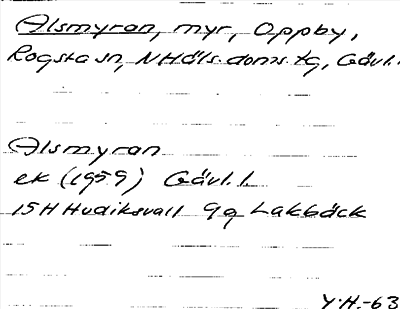 Alsmyran, myr, Oppby,
Rogsta sn, NHäls. doms. tg, Gävl. l.
Alsmyran
ek (1959) Gävl. l.
15H Hudiksvall 9g Lakbäck
Y.H.-63